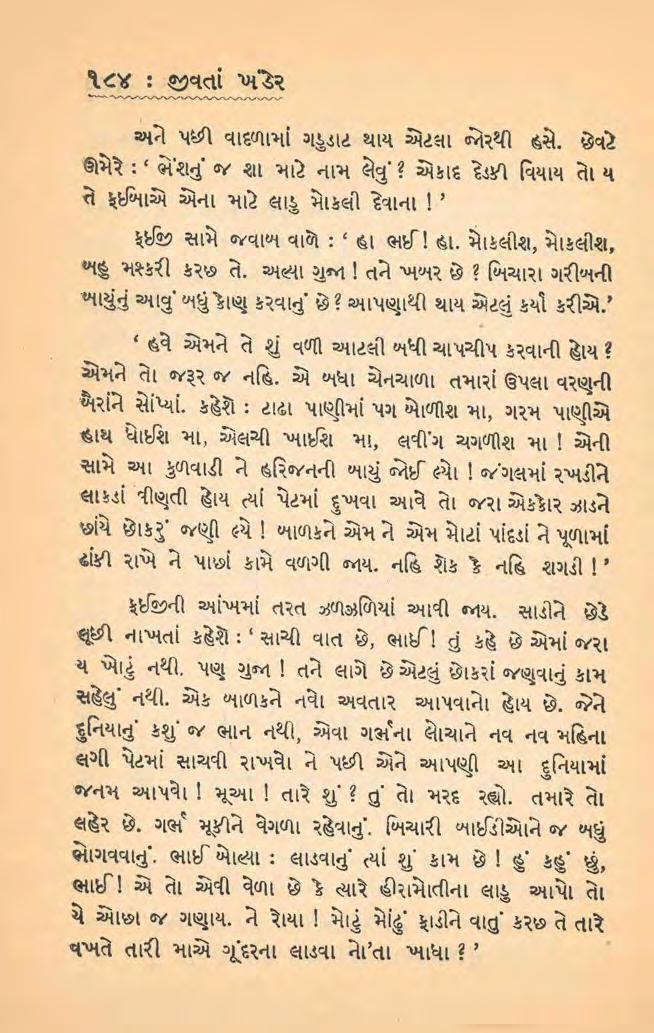 ૧૮૪ : જીવતાં ખંડેર
અને પછી વાદળામાં ગડુડાટ થાય એટલા જોરથી હસે. છેવટે
ઊમેરે : ‘ ભેંશનું જ શા માટે નામ લેવું ? એકાદ દેડકી વિયાય તો ય
તે ફઈબાએ એના માટે લાડુ મોકલી દેવાના ! ’
ફઈજી સામે જવાબ વાળે : ‘ હા ભઈ ! હા. મોકલીશ, મોકલીશ,
બહુ મશ્કરી કરછ તે. અલ્યા ગુજા ! તને ખબર છે ? બિચારા ગરીબની
બાયુંનું આવું બધું કોણ કરવાનું છે ? આપણાથી થાય એટલું કર્યા કરીએ.’
‘ હવે એમને તે શું વળી આટલી બધી ચાપચીપ કરવાની હોય ?
એમને તો જરૂર જ નહિ. એ બધા ચેનચાળા તમારાં ઉપલા વરણની
બૈરાંને સોંપ્યાં. કહેશે : ટાઢા પાણીમાં પગ બોળીશ મા, ગરમ પાણીએ
હાથ ધોઈશ મા, એલચી ખાઈશ મા, લવીંગ ચગળીશ મા ! એની
સામે આ કુળવાડી ને હરિજનની બાયું જોઈ લ્યો ! જંગલમાં રખડીને
લાકડાં વીણતી હોય ત્યાં પેટમાં દુખવા આવે તો જરા એકકોર ઝાડને
છાંયે છોકરું જણી લ્યે ! બાળકને એમ ને એમ મોટાં પાંદડાં ને પૂળામાં
ઢાંકી રાખે ને પાછાં કામે વળગી જાય. નહિ શેક કે નહિ શગડી ! ’
ફઈજીની આંખમાં તરત ઝળઝળિયાં આવી જાય. સાડીને છેડે
લૂછી નાખતાં કહેશે : ‘ સાચી વાત છે, ભાઈ ! તું કહે છે એમાં જરા
ય ખોટું નથી. પણ ગુજા ! તને લાગે છે એટલું છોકરાં જણવાનું કામ
સહેલું નથી. એક બાળકને નવો અવતાર આપવાનો હોય છે. જેને
દુનિયાનું કશું જ ભાન નથી, એવા ગર્ભના લોચાને નવ નવ મહિના
લગી પેટમાં સાચવી રાખવો ને પછી એને આપણી આ દુનિયામાં
જનમ આપવો ! મૂઆ ! તારે શું ? તું તો મરદ રહ્યો. તમારે તો
લહેર છે. ગર્ભ મૂકીને વેગળા રહેવાનું. બિચારી બાઈડીઓને જ બધું
ભોગવવાનું. ભાઈ બોલ્યા : લાડવાનું ત્યાં શું કામ છે ! હું કહું છું,
ભાઈ ! એ તો એવી વેળા છે કે ત્યારે હીરામોતીના લાડુ આપો તો
યે ઓછા જ ગણાય. ને રોયા ! મોટું મોંઢું ફાડીને વાતું કરછ તે તારે
વખતે તારી માએ ગૂંદરના લાડવા નો'તા ખાધા ? ’